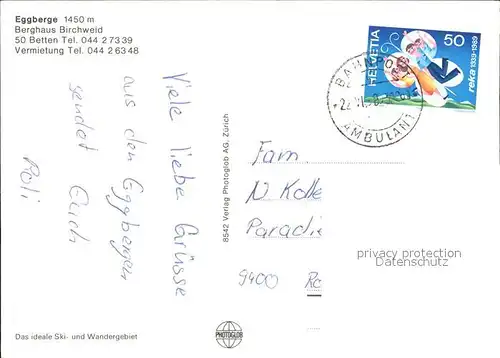 Eggberge 1450 m
Berghaus Birchweid
50 Betten Tel. 044 2 73 39
Vermietung Tel. 044 2 63 48
HELVETIA
50
reka 1939-1989
BAHNPOST
AMBULANT
Viele liebe Grüsse
aus den Eggbergen
sendet Euch
Poli
8542 Verlag Photoglob AG, Zürich
Fam.
N Kolle
Paradie
9400 Ro
privacy protection
Datenschutz
Das ideale Ski- und Wandergebiet
PHOTOGLOB